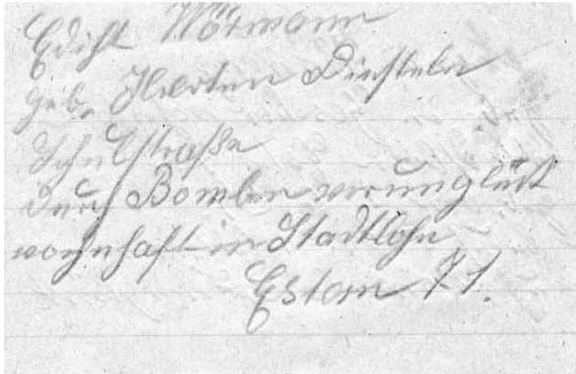 Edith Wörmann
geb. Herten Dinsteln
Schulstraße
durch Bomben verunglückt
wohnhaft in Stadtlohn
Estern 71.